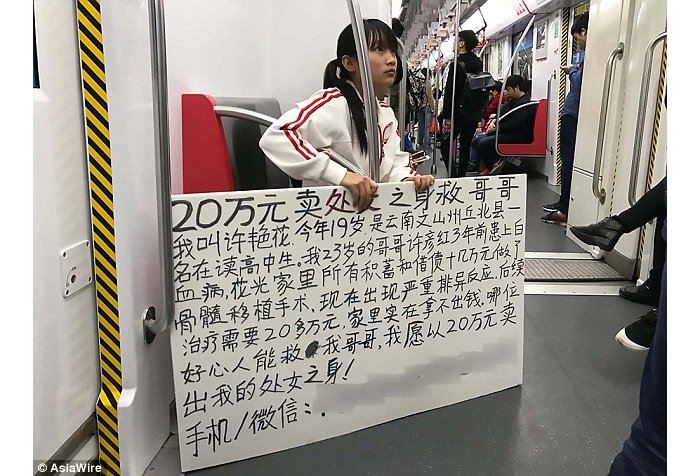 20万元卖处女之身救哥哥
我叫许艳花.今年19岁是云南文山州丘北县一
名在读高中生.我23岁的哥哥许彦红3年前患上白
血病,花光家里所有积蓄和借债十几万元做了
骨髓移植手术,现在出现严重排异反应,后续
治疗需要20多万元,家里实在拿不出钱.哪位
好心人能救我哥哥,我愿以20万元卖
出我的处女之身!
手机/微信:.
© AsiaWire